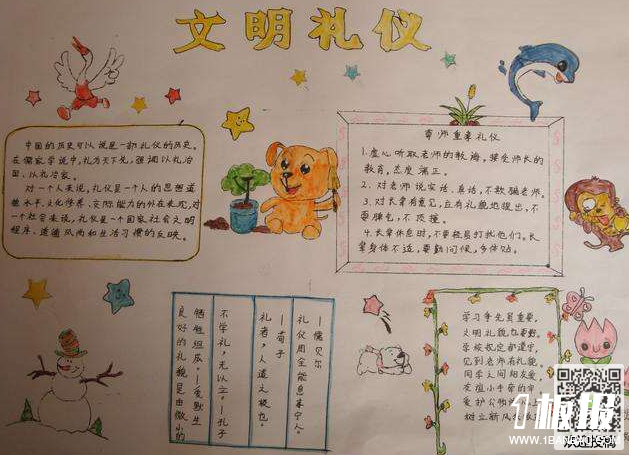 文明礼仪
中国的历史可以说是一部礼仪的历史。
在儒家学说中，礼为天下先，强调以礼治
国、以礼治家。
对一个人来说，礼仪是一个人的思想道
德水平、文化修养、交际能力的外在表现，对
一个社会来说，礼仪是一个国家社会文明
程度、道德风尚和生活习惯的反映。
尊师重亲礼仪
1.虚心听取老师的教诲，接受师长的
教育，态度端正。
2.对老师说实话，真话，不欺骗老师。
3.对长辈有意见，应有礼貌地提出，不
耍脾气，不顶撞。
4.长辈休息时，不要轻易打扰他们。长
辈身体不适，要勤问候，多体贴。
良好的礼貌是由微小的
牺牲组成。—爱默生
不学礼，无以立。—孔子
礼者，人道之极也。
—荀子
礼仪周全能息事宁人。
—儒贝尔
学习争先最重要，
文明礼貌也要到。
学校规定都遵守，
见到老师有礼貌。
同学之间相友爱，
爱护公物
树立新风
板报
WWW.1BANBAO.COM
欢迎投稿